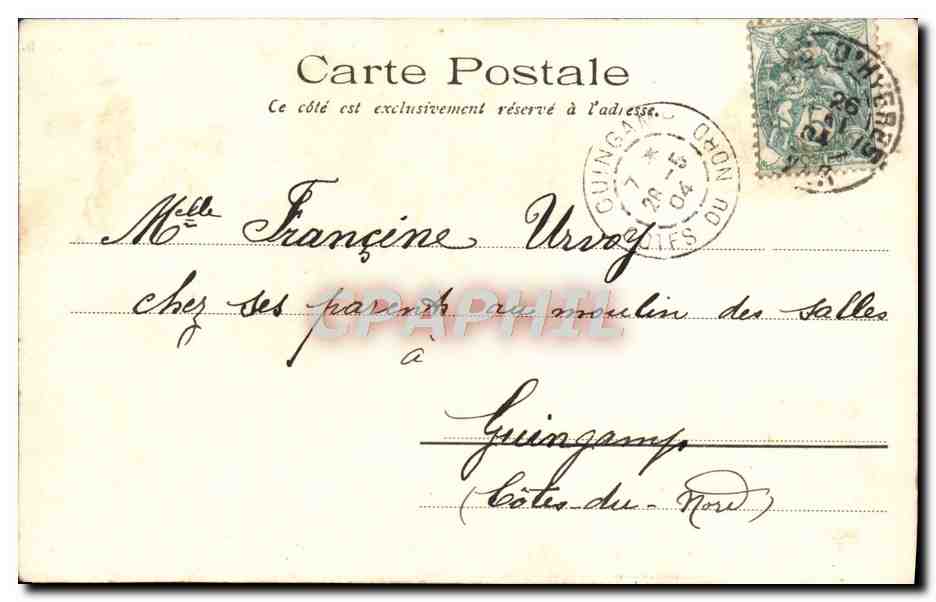 Carte Postale
Ce côté est exclusivement réservé à l'adresse.
D'HYÈRES
26
04
GUINGAMP CÔTES DU NORD
7
28
04
Melle Françine Urvoy
chez ses parents au moulin des salles
CPAPHIL
à
Guingamp
(Côtes-du-Nord)